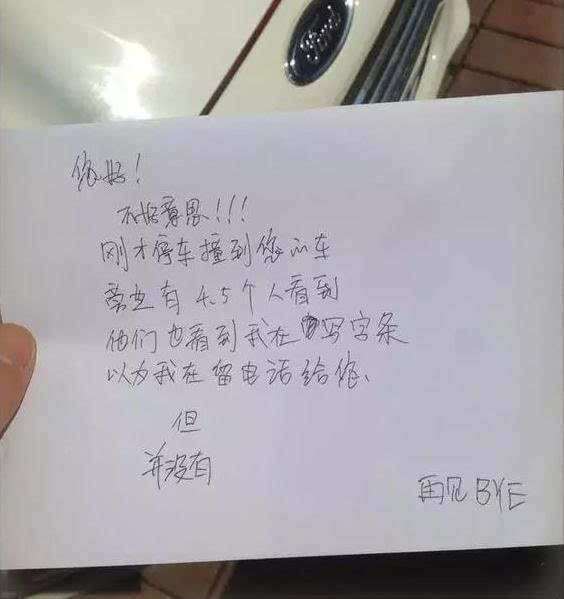 Ford
您好!
不好意思!!!
刚才停车撞到您的车
旁边有4.5个人看到
他们也看到我在写字条
以为我在留电话给您、
但
并没有
再见 BYE